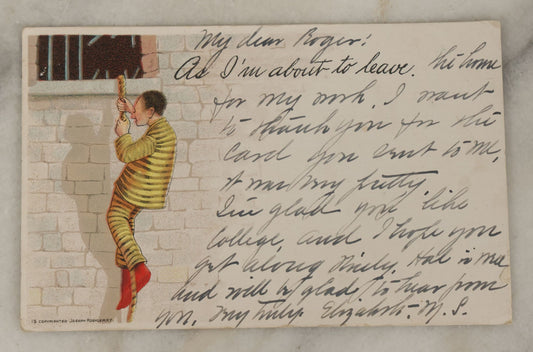 My dear Roger!
As I'm about to leave. the house
for my work, I want
to thank you for the
card you sent to me,
it was very pretty.
I'm glad you like
College, and I hope you
get along nicely. Hal is
and will be glad to hear from
you. Elizabeth. M. S.
COPYRIGHTED JOSEPH